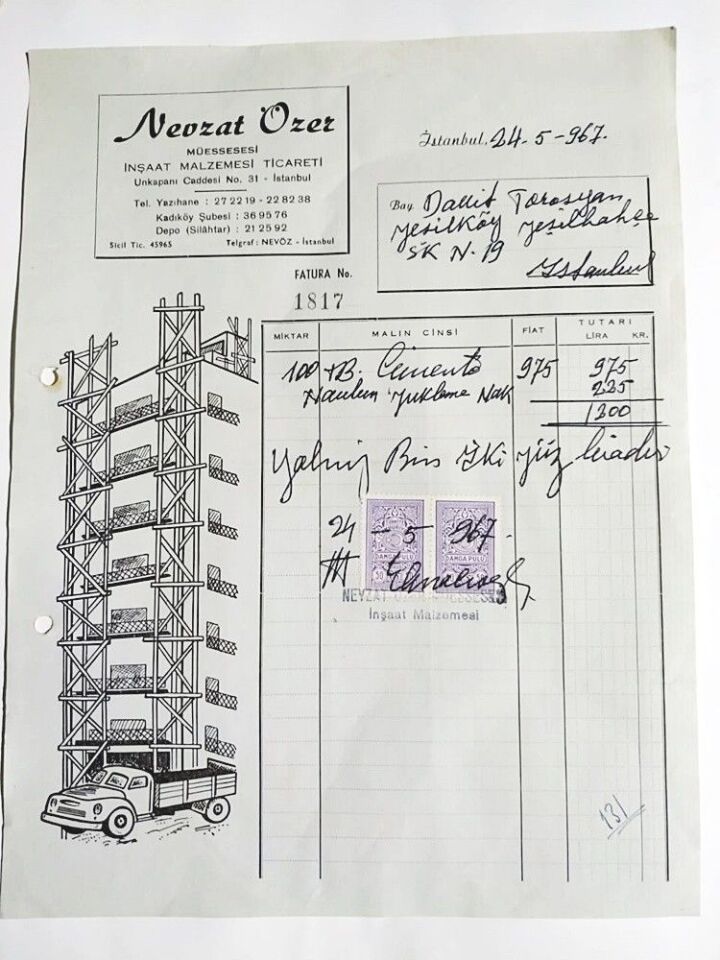 Nevzat Özer
MÜESSESESİ
İNŞAAT MALZEMESİ TİCARETİ
Unkapanı Caddesi No. 31 - İstanbul
Tel. Yazıhane : 27 22 19 - 22 82 38
Kadıköy Şubesi : 36 95 76
Depo (Silâhtar) : 21 25 92
Sicil Tic. 45965 Telgraf : NEVÖZ - İstanbul
İstanbul, 24-5-967.
Bay, Davit Torosyan
Yeşilköy Yeşilbahçe
SK N. 19
İstanbul
FATURA No.
1817
MİKTAR MALIN CİNSİ FİAT TUTARI
LİRA KR.
100 TB. Cimento 975 975
Yükleme Nak 225
1200
Yalnız Bin İki yüz liradır
24 - 5 967.
DAMGA PULU DAMGA PULU
50
NEVZAT ÖZER MÜESSESESİ
İnşaat Malzemesi
131